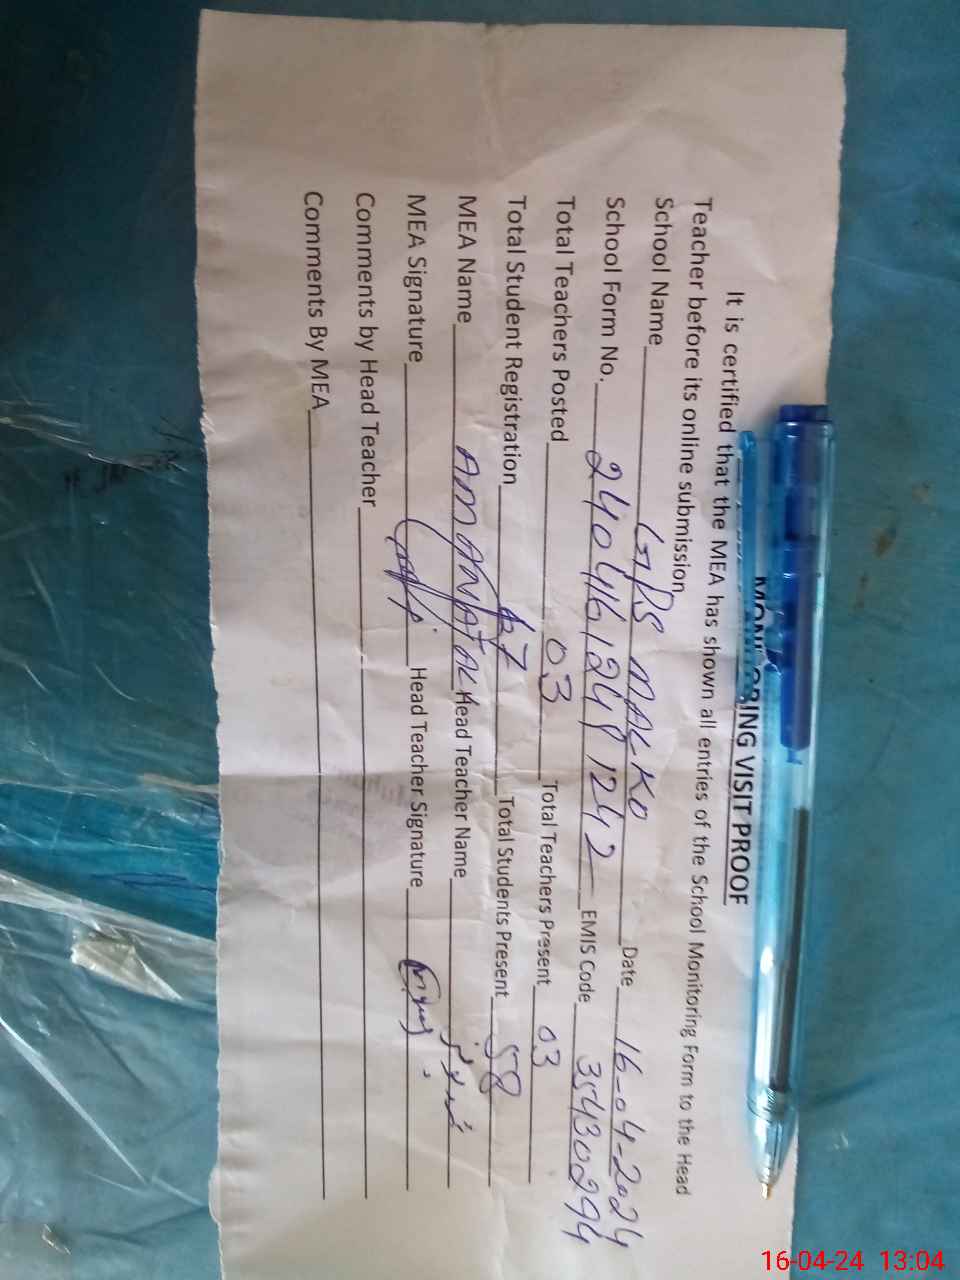 MONITORING VISIT PROOF
It is certified that the MEA has shown all entries of the School Monitoring Form to the Head
Teacher before its online submission.
School Name GPS MALKO Date 16-04-2024
School Form No. EMIS Code 35430294
Total Teachers Posted 03 Total Teachers Present 03
Total Student Registration 67 Total Students Present 58
MEA Name AMANAT ALI Head Teacher Name
MEA Signature Head Teacher Signature
Comments by Head Teacher
Comments By MEA
16-04-24 13:04